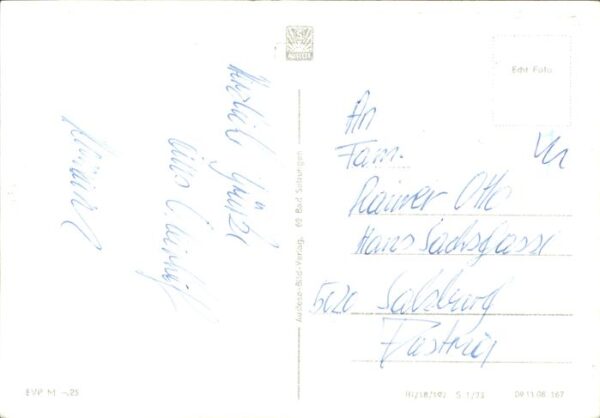 Herzliche Grüße
aus Leipzig
An
Fam.
Rainer Otto
Hans Sachsgasse
5020 Salzburg
Austria
Echt Foto
Auslese-Bild-Verlag, 69 Bad Salzungen
EVP M -,25
III/18/197 S 1/73
09 11 08 167